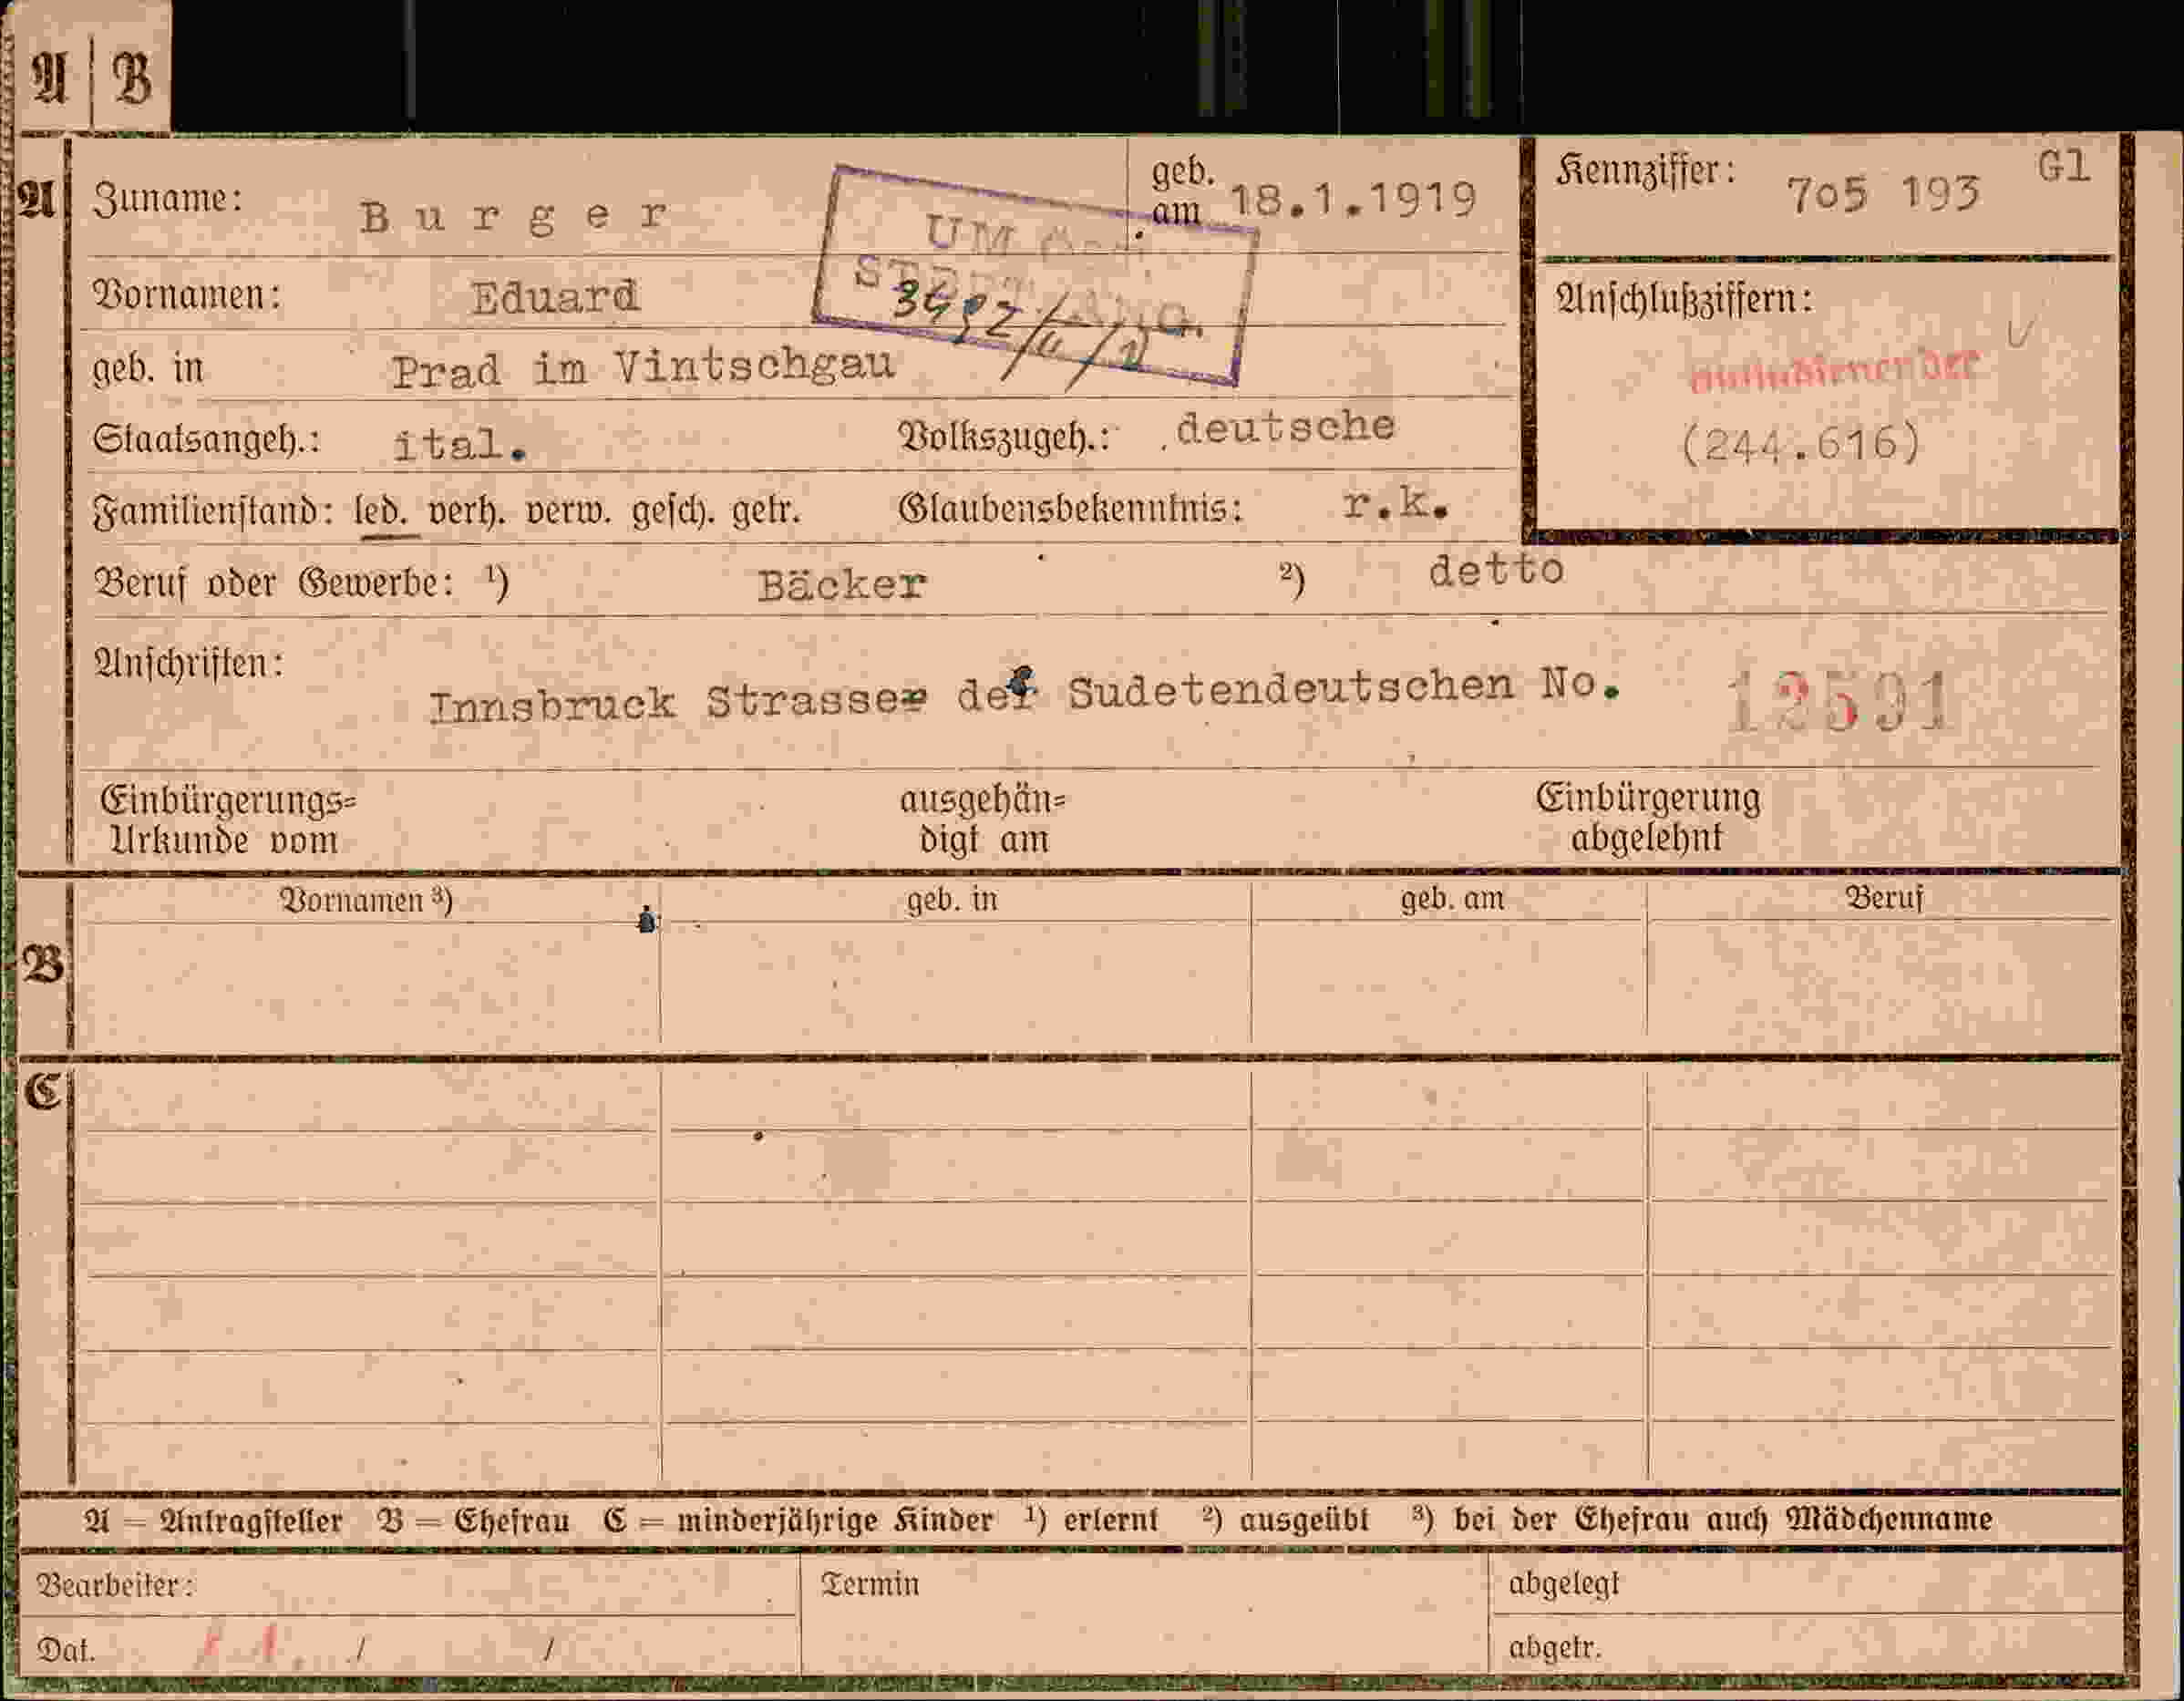 A | B
A Zuname: Burger geb. am 18.1.1919 Kennziffer: 705 193 Gl
Vornamen: Eduard
Anschlußziffern:
geb. in Prad im Vintschgau
der
Staatsangeh.: ital. Volkszugeh.: deutsche (244.616)
Familienstand: led. verh. verw. gesch. getr. Glaubensbekenntnis: r.k.
Beruf oder Gewerbe: ¹) Bäcker ²) detto
Anschriften:
Innsbruck Strasse der Sudetendeutschen No. 12591
Einbürgerungs= ausgehän= Einbürgerung
Urkunde vom digt am abgelehnt
Vornamen ³) geb. in geb. am Beruf
B
C
A = Antragsteller B = Ehefrau C = minderjährige Kinder ¹) erlernt ²) ausgeübt ³) bei der Ehefrau auch Mädchenname
Bearbeiter: Termin abgelegt
Dat. / / abgetr.